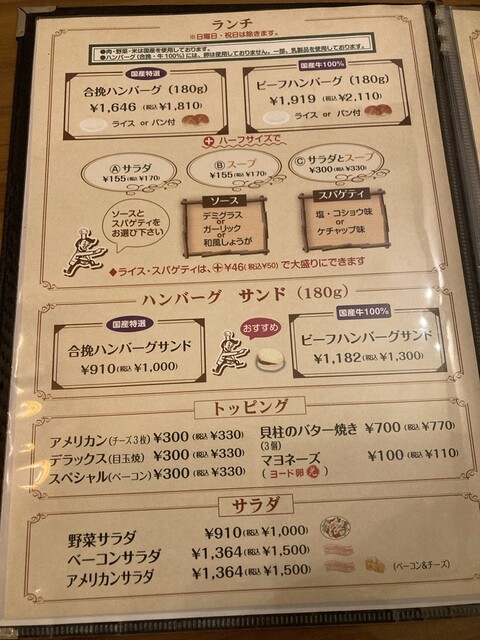 ランチ
※日曜日・祝日は除きます。
●肉・野菜・米は国産を使用しております。
●ハンバーグ(合挽・牛100%)には、卵は使用しておりません。一部、乳製品を使用しております。
国産特選
合挽ハンバーグ(180g)
¥1,646(税込¥1,810)
ライス or パン付
国産牛100%
ビーフハンバーグ(180g)
¥1,919(税込¥2,110)
ライス or パン付
+ハーフサイズで
Ⓐサラダ
¥155(税込¥170)
Ⓑスープ
¥155(税込¥170)
Ⓒサラダとスープ
¥300(税込¥330)
ソースと
スパゲティを
お選び下さい
ソース
デミグラス
or
ガーリック
or
和風しょうが
スパゲティ
塩・コショウ味
or
ケチャップ味
◆ライス・スパゲティは、+¥46(税込¥50)で大盛りにできます
ハンバーグ サンド(180g)
国産特選
合挽ハンバーグサンド
¥910(税込¥1,000)
おすすめ
国産牛100%
ビーフハンバーグサンド
¥1,182(税込¥1,300)
トッピング
アメリカン(チーズ3枚)¥300(税込¥330)
デラックス(目玉焼)¥300(税込¥330)
スペシャル(ベーコン)¥300(税込¥330)
貝柱のバター焼き ¥700(税込¥770)
(3個)
マヨネーズ ¥100(税込¥110)
(ヨード卵 光)
サラダ
野菜サラダ ¥910(税込¥1,000)
ベーコンサラダ ¥1,364(税込¥1,500)
アメリカンサラダ ¥1,364(税込¥1,500) (ベーコン&チーズ)